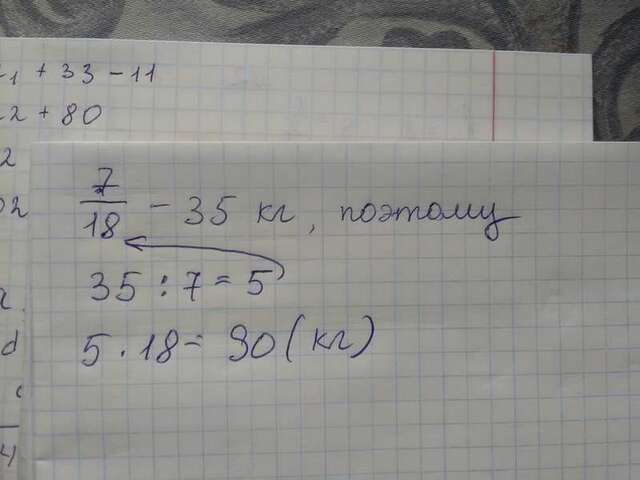 + 33 - 11
2 + 80
2
02
7/18 - 35 кг, поэтому
35 : 7 = 5
5 · 18 = 90 (кг)
d
4